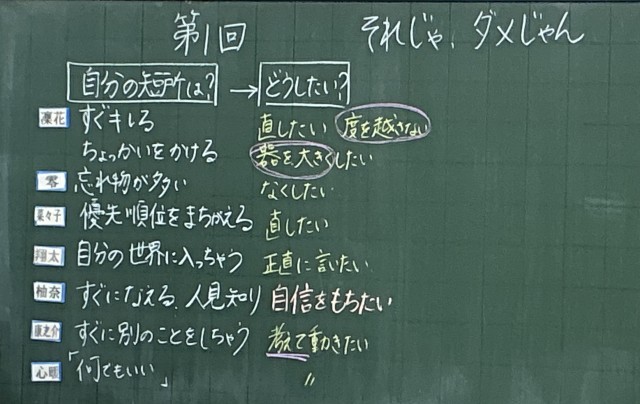 第1回 それじゃ、ダメじゃん
自分の短所は? → どうしたい?
凛花 すぐキレる 直したい 度を越さない
ちょっかいをかける 器を大きくしたい
零 忘れ物が多い なくしたい
菜々子 優先順位をまちがえる 直したい
翔太 自分の世界に入っちゃう 正直に言いたい
柚奈 すぐになえる、人見知り 自信をもちたい
康之介 すぐに別のことをしちゃう 考えて動きたい
心 「何でもいい」 〃